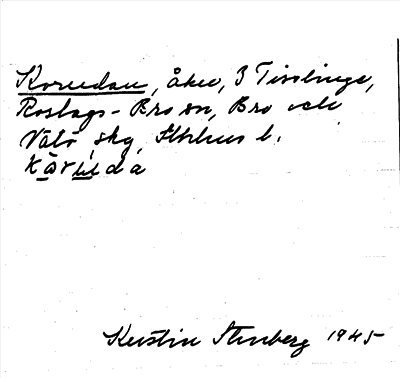 Korndan, åker, 3 Tisslinge,
Roslags-Bro sn, Bro och
Vätö skg, Sthlms l.
Kårilda
Kerstin Stenberg 1945